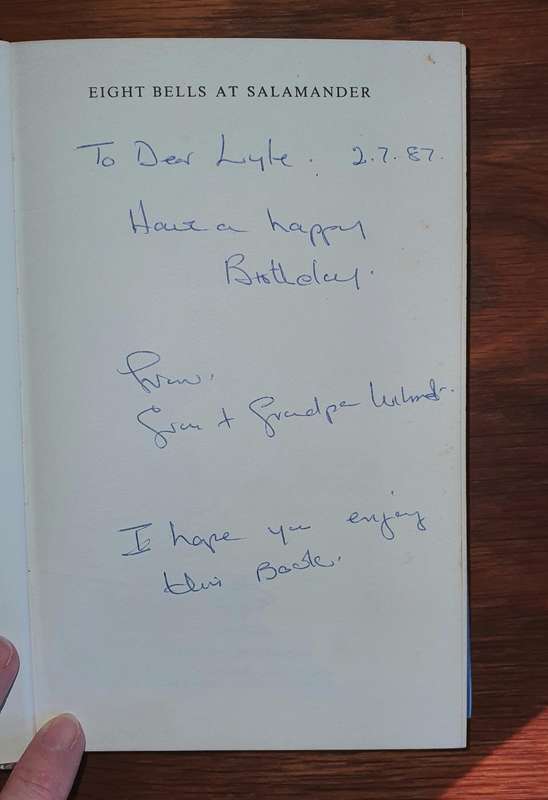 EIGHT BELLS AT SALAMANDER
To Dear Lyle. 2.7.87.
Have a happy
Birthday.
From.
Gran + Grandpa
I hope you enjoy
this Book.